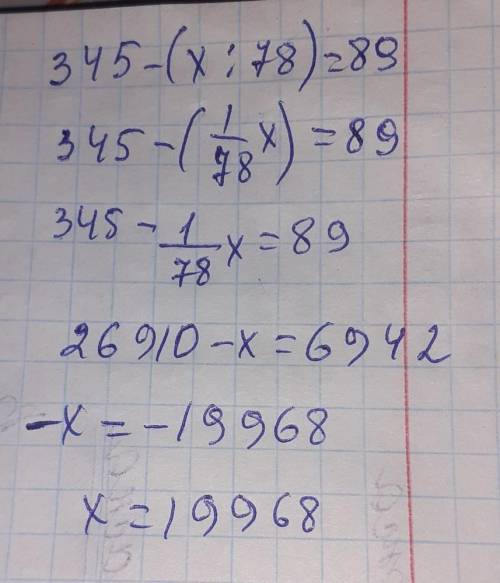 345-(x:78)=89
345-(1/78 x)=89
345-1/78 x=89
26910-x=6942
-x=-19968
x=19968